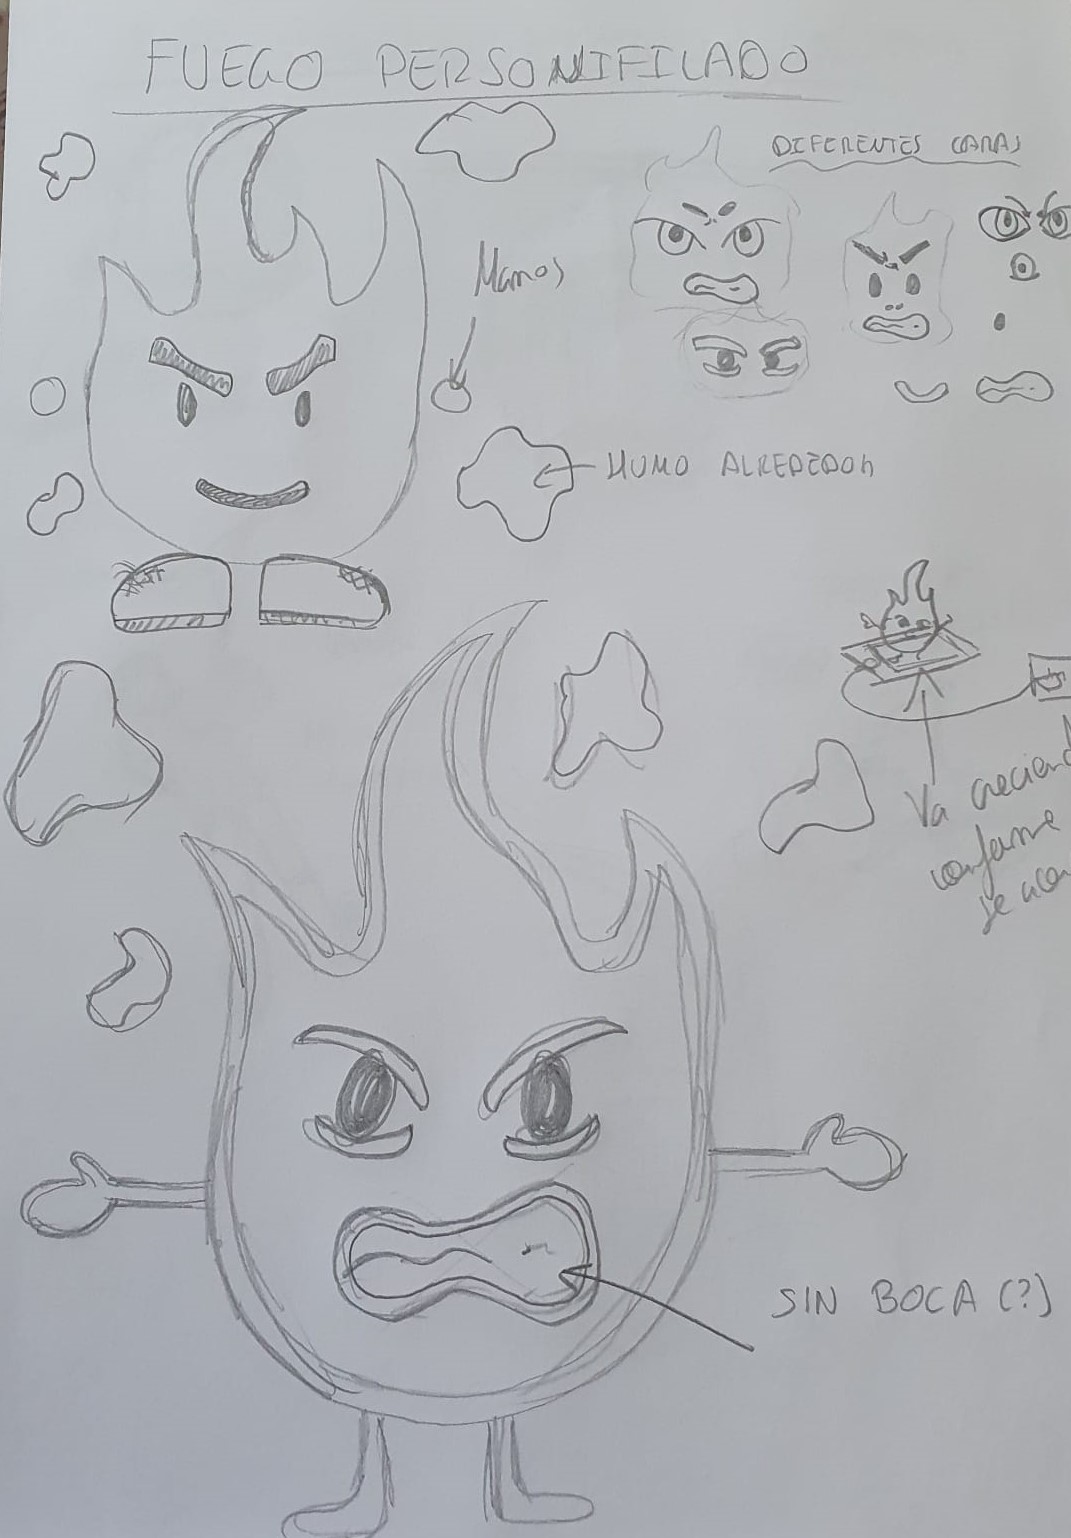 FUEGO PERSONIFILADO
DIFERENTES CARAS
Manos
HUMO ALREDEDOR
Va creciend
conforme
se
SIN BOCA (?)